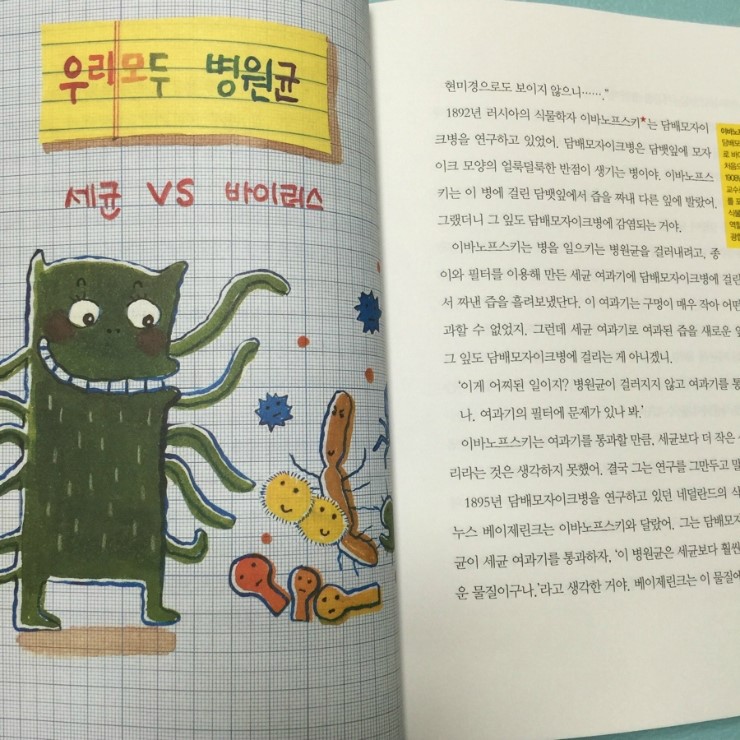 우리모두 병원균
세균 VS 바이러스
현미경으로도 보이지 않으니……."
1892년 러시아의 식물학자 이바노프스키*는 담배모자이
크병을 연구하고 있었어. 담배모자이크병은 담뱃잎에 모자
이크 모양의 얼룩덜룩한 반점이 생기는 병이야. 이바노프스
키는 이 병에 걸린 담뱃잎에서 즙을 짜내 다른 잎에 발랐어.
그랬더니 그 잎도 담배모자이크병에 감염되는 거야.
이바노프스키는 병을 일으키는 병원균을 걸러내려고, 종
이와 필터를 이용해 만든 세균 여과기에 담배모자이크병에 걸린
서 짜낸 즙을 흘려보냈단다. 이 여과기는 구멍이 매우 작아 어떤
과할 수 없었지. 그런데 세균 여과기로 여과된 즙을 새로운
그 잎도 담배모자이크병에 걸리는 게 아니겠니.
'이게 어찌된 일이지? 병원균이 걸러지지 않고 여과기를 통
나. 여과기의 필터에 문제가 있나 봐.'
이바노프스키는 여과기를 통과할 만큼, 세균보다 더 작은
리라는 것은 생각하지 못했어. 결국 그는 연구를 그만두고 말
1895년 담배모자이크병을 연구하고 있던 네덜란드의 식
누스 베이제린크는 이바노프스키와 달랐어. 그는 담배모자
균이 세균 여과기를 통과하자, '이 병원균은 세균보다 훨씬
운 물질이구나.'라고 생각한 거야. 베이제린크는 이 물질에
이바노
담배모
로 바이
처음으
교수
를 포
식물
역할